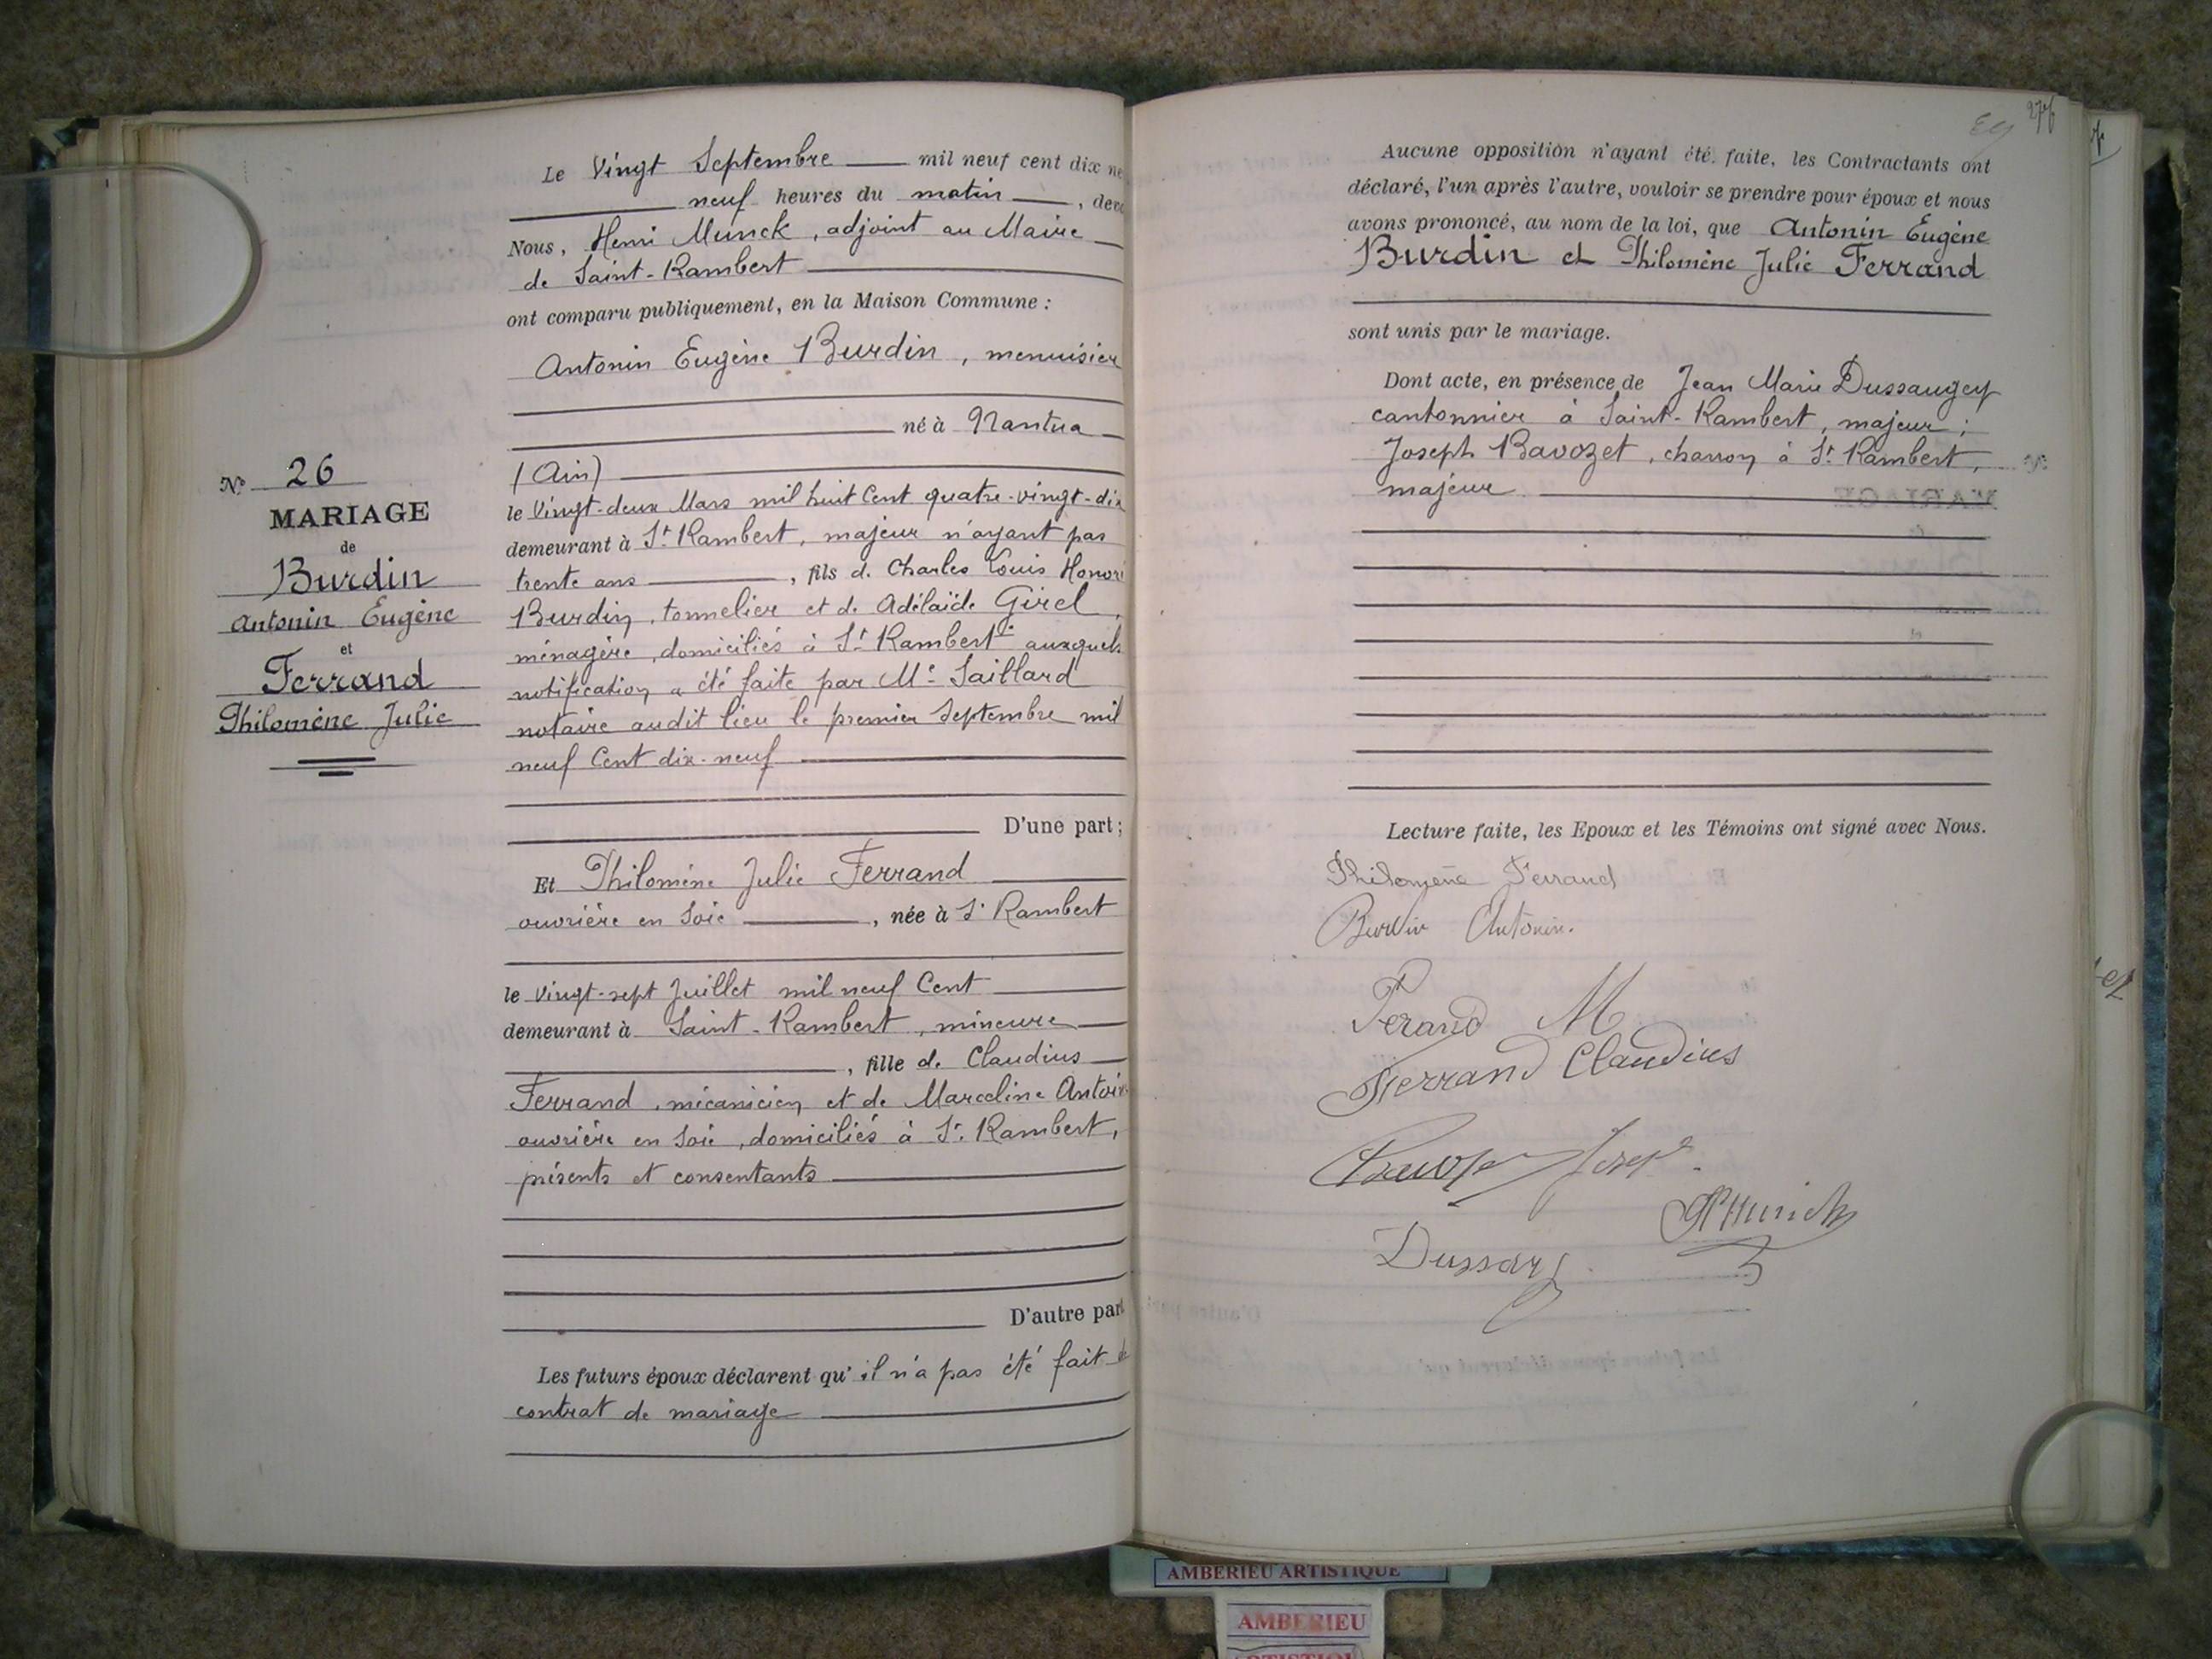 Le Vingt Septembre mil neuf cent dix
neuf heures du matin
Nous, Henri Munck, adjoint au Maire
de Saint-Rambert
ont comparu publiquement, en la Maison Commune :
Antonin Eugène Burdin, menuisier
né à Nantua
(Ain)
le Vingt-deux Mars mil huit Cent quatre-vingt-dix
demeurant à St Rambert, majeur n'ayant pas
trente ans, fils de Charles Louis Honoré
Burdin, tonnelier et de Adélaïde Girel,
ménagère, domiciliés à St Rambert auxquels
notification a été faite par Me Saillard
notaire audit lieu le premier Septembre mil
neuf Cent dix-neuf
D'une part ;
Et Philomène Julie Ferrand
ouvrière en Soie, née à St Rambert
le Vingt-sept Juillet mil neuf Cent
demeurant à Saint-Rambert, mineure
, fille de Claudius
Ferrand, mécanicien et de Marceline
ouvrière en Soie, domiciliés à St Rambert,
présents et consentants
D'autre part
Les futurs époux déclarent qu'il n'a pas été fait de
contrat de mariage
No 26
MARIAGE
de
Burdin
Antonin Eugène
et
Ferrand
Philomène Julie
Aucune opposition n'ayant été faite, les Contractants ont
déclaré, l'un après l'autre, vouloir se prendre pour époux et nous
avons prononcé, au nom de la loi, que Antonin Eugène
Burdin et Philomène Julie Ferrand
sont unis par le mariage.
Dont acte, en présence de Jean Marie Dussaugey
cantonnier à Saint-Rambert, majeur ;
Joseph Bavozet, charron à St Rambert,
majeur
Lecture faite, les Epoux et les Témoins ont signé avec Nous.
Philomène Ferrand
Burdin Antonin.
Ferand M
Ferrand Claudius
AMBERIEU ARTISTIQUE
AMBERIEU